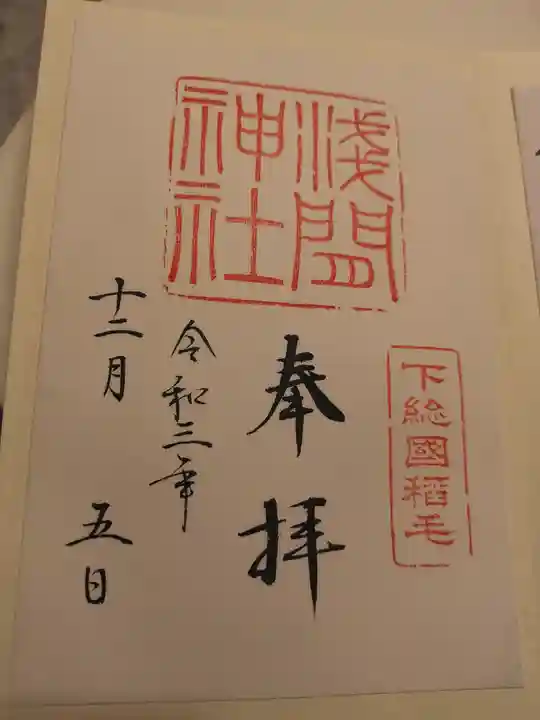 下総國稲毛
淺間神社
奉拝
令和三年
十二月五日